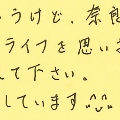 ろうけど、奈良
ライフを思いま
して下さい。
しています^^